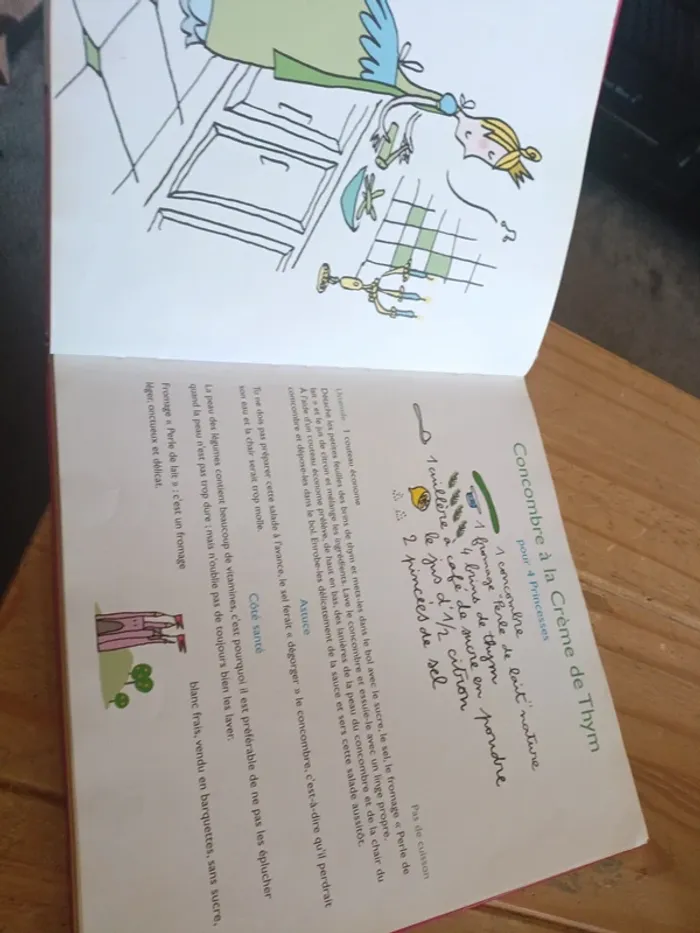 Concombre à la Crème de Thym
pour 4 Princesses
1 concombre
1 fromage "Perle de lait" nature
4 brins de thym
1 cuillère à café de sucre en poudre
le jus d'1/2 citron
2 pincées de sel
Pas de cuisson
Ustensile : 1 couteau économe
Détache les petites feuilles des brins de thym et mets-les dans le bol avec le sucre, le sel, le fromage « Perle de
lait » et le jus de citron et mélange les ingrédients. Lave le concombre et essuie-le avec un linge propre.
À l'aide d'un couteau économe prélève, de haut en bas, des lanières de la peau du concombre et de la chair du
concombre et dépose-les dans le bol. Enrobe-les délicatement de la sauce et sers cette salade aussitôt.
Astuce
Tu ne dois pas préparer cette salade à l'avance, le sel ferait « dégorger » le concombre, c'est-à-dire qu'il perdrait
son eau et la chair serait trop molle.
Côté santé
La peau des légumes contient beaucoup de vitamines, c'est pourquoi il est préférable de ne pas les éplucher
quand la peau n'est pas trop dure ; mais n'oublie pas de toujours bien les laver.
Fromage « Perle de lait » : c'est un fromage blanc frais, vendu en barquettes, sans sucre,
léger, onctueux et délicat.